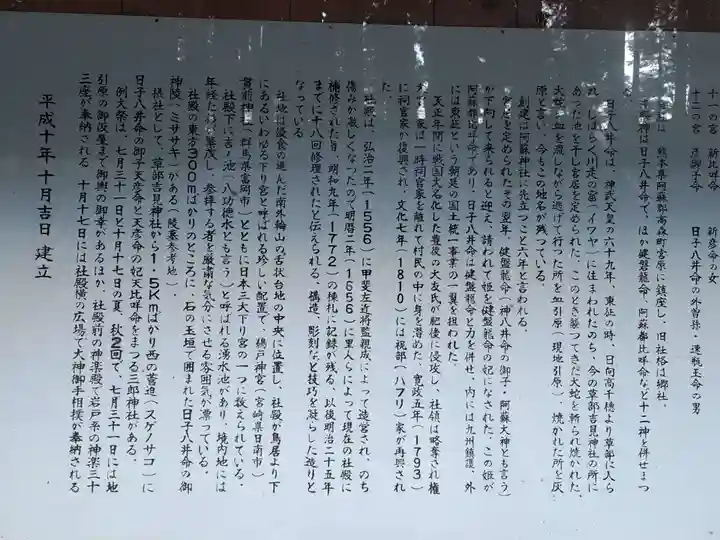 十一の宮 新比咩命 新彦命の女
十二の宮 彌比咩命 日子八井命の外曽孫・速瓶玉命の男
熊本県阿蘇郡高森町宮原に鎮座し、旧社格は郷社、
日子八井命で、ほか健磐龍命、阿蘇都比咩命など十二神を併せまつ
る。
日子八井命は、神武天皇の六十九年、東征の時、日向高千穂より草部に入ら
れ、しばらく川走の窟(イワヤ)に住まわれたのち、今の草部吉見神社の所に
あった池を干し宮居を定められた。このとき襲ってきた大蛇を斬られ焼かれた。
大蛇が血を流しながら逃げて行った所を血引原(現地引原)、焼かれた所を灰
原と言い、今もこの地名が残っている。
創建は阿蘇神社に先立つこと六年と言われる。
宮居を定められたその翌年、健磐龍命(神八井命の御子、阿蘇大神とも言う)
が下向して来られるを迎え、請われて姫を健磐龍命の妃になされた。この姫が
阿蘇都比咩命であり、日子八井命は健磐龍命と力を併せ、内には九州鎮護、外
には東征という朝廷の国土統一事業の一翼を担われた。
天正年間に戦国大名化した豊後の大友氏が肥後に侵攻し、社領は略奪され権
大宮司家は一時祠官家を離れて村民の中に身を潜めた。寛政五年(1793)
に祠官家が復興され、文化七年(1810)には祝部(ハフリ)家が再興され
た。
社殿は、弘治二年(1556)に甲斐左近将監親成によって造営され、のち
傷みが激しくなったので明暦二年(1656)に里人らによって現在の社殿に
補修された旨、明和九年(1772)の棟札に記録が残る。以後明治二十五年
までに十八回修理されたと伝えられる。構造、彫刻など技巧を凝らした造りと
なっている。
社地は浸食の進んだ南外輪山の舌状台地の中央に位置し、社殿が鳥居より下
にあるいわゆる下り宮と呼ばれる珍しい配置で、鵜戸神宮(宮崎県日南市)
貫前神社(群馬県富岡市)とともに日本三大下り宮の一つに数えられている。
社殿下に吉ノ池(八功徳水とも言う)と呼ばれる湧水池があり、境内地には
年経た杉が繁茂し、参拝する者を厳粛な気分にさせる雰囲気が漂っている。
社殿の東方300mばかりのところに、石の玉垣で囲まれた日子八井命の御
神陵(ミササギ)がある(陵墓参考地)。
摂社として、草部吉見神社から1.5Kmばかり西の菅迫(スゲノサコ)に
日子八井命の御子天彦命と天彦命の妃天比咩命をまつる三郎神社がある。
例大祭は、七月三十一日と十月十七日の夏、秋2回で、七月三十一日には地
引原の御仮屋まで御輿の御幸があるほか、社殿前の神楽殿で岩戸系の神楽三十
三座が奉納される。十月十七日には社殿横の広場で大神御手相撲が奉納される
平成十年十月吉日 建立